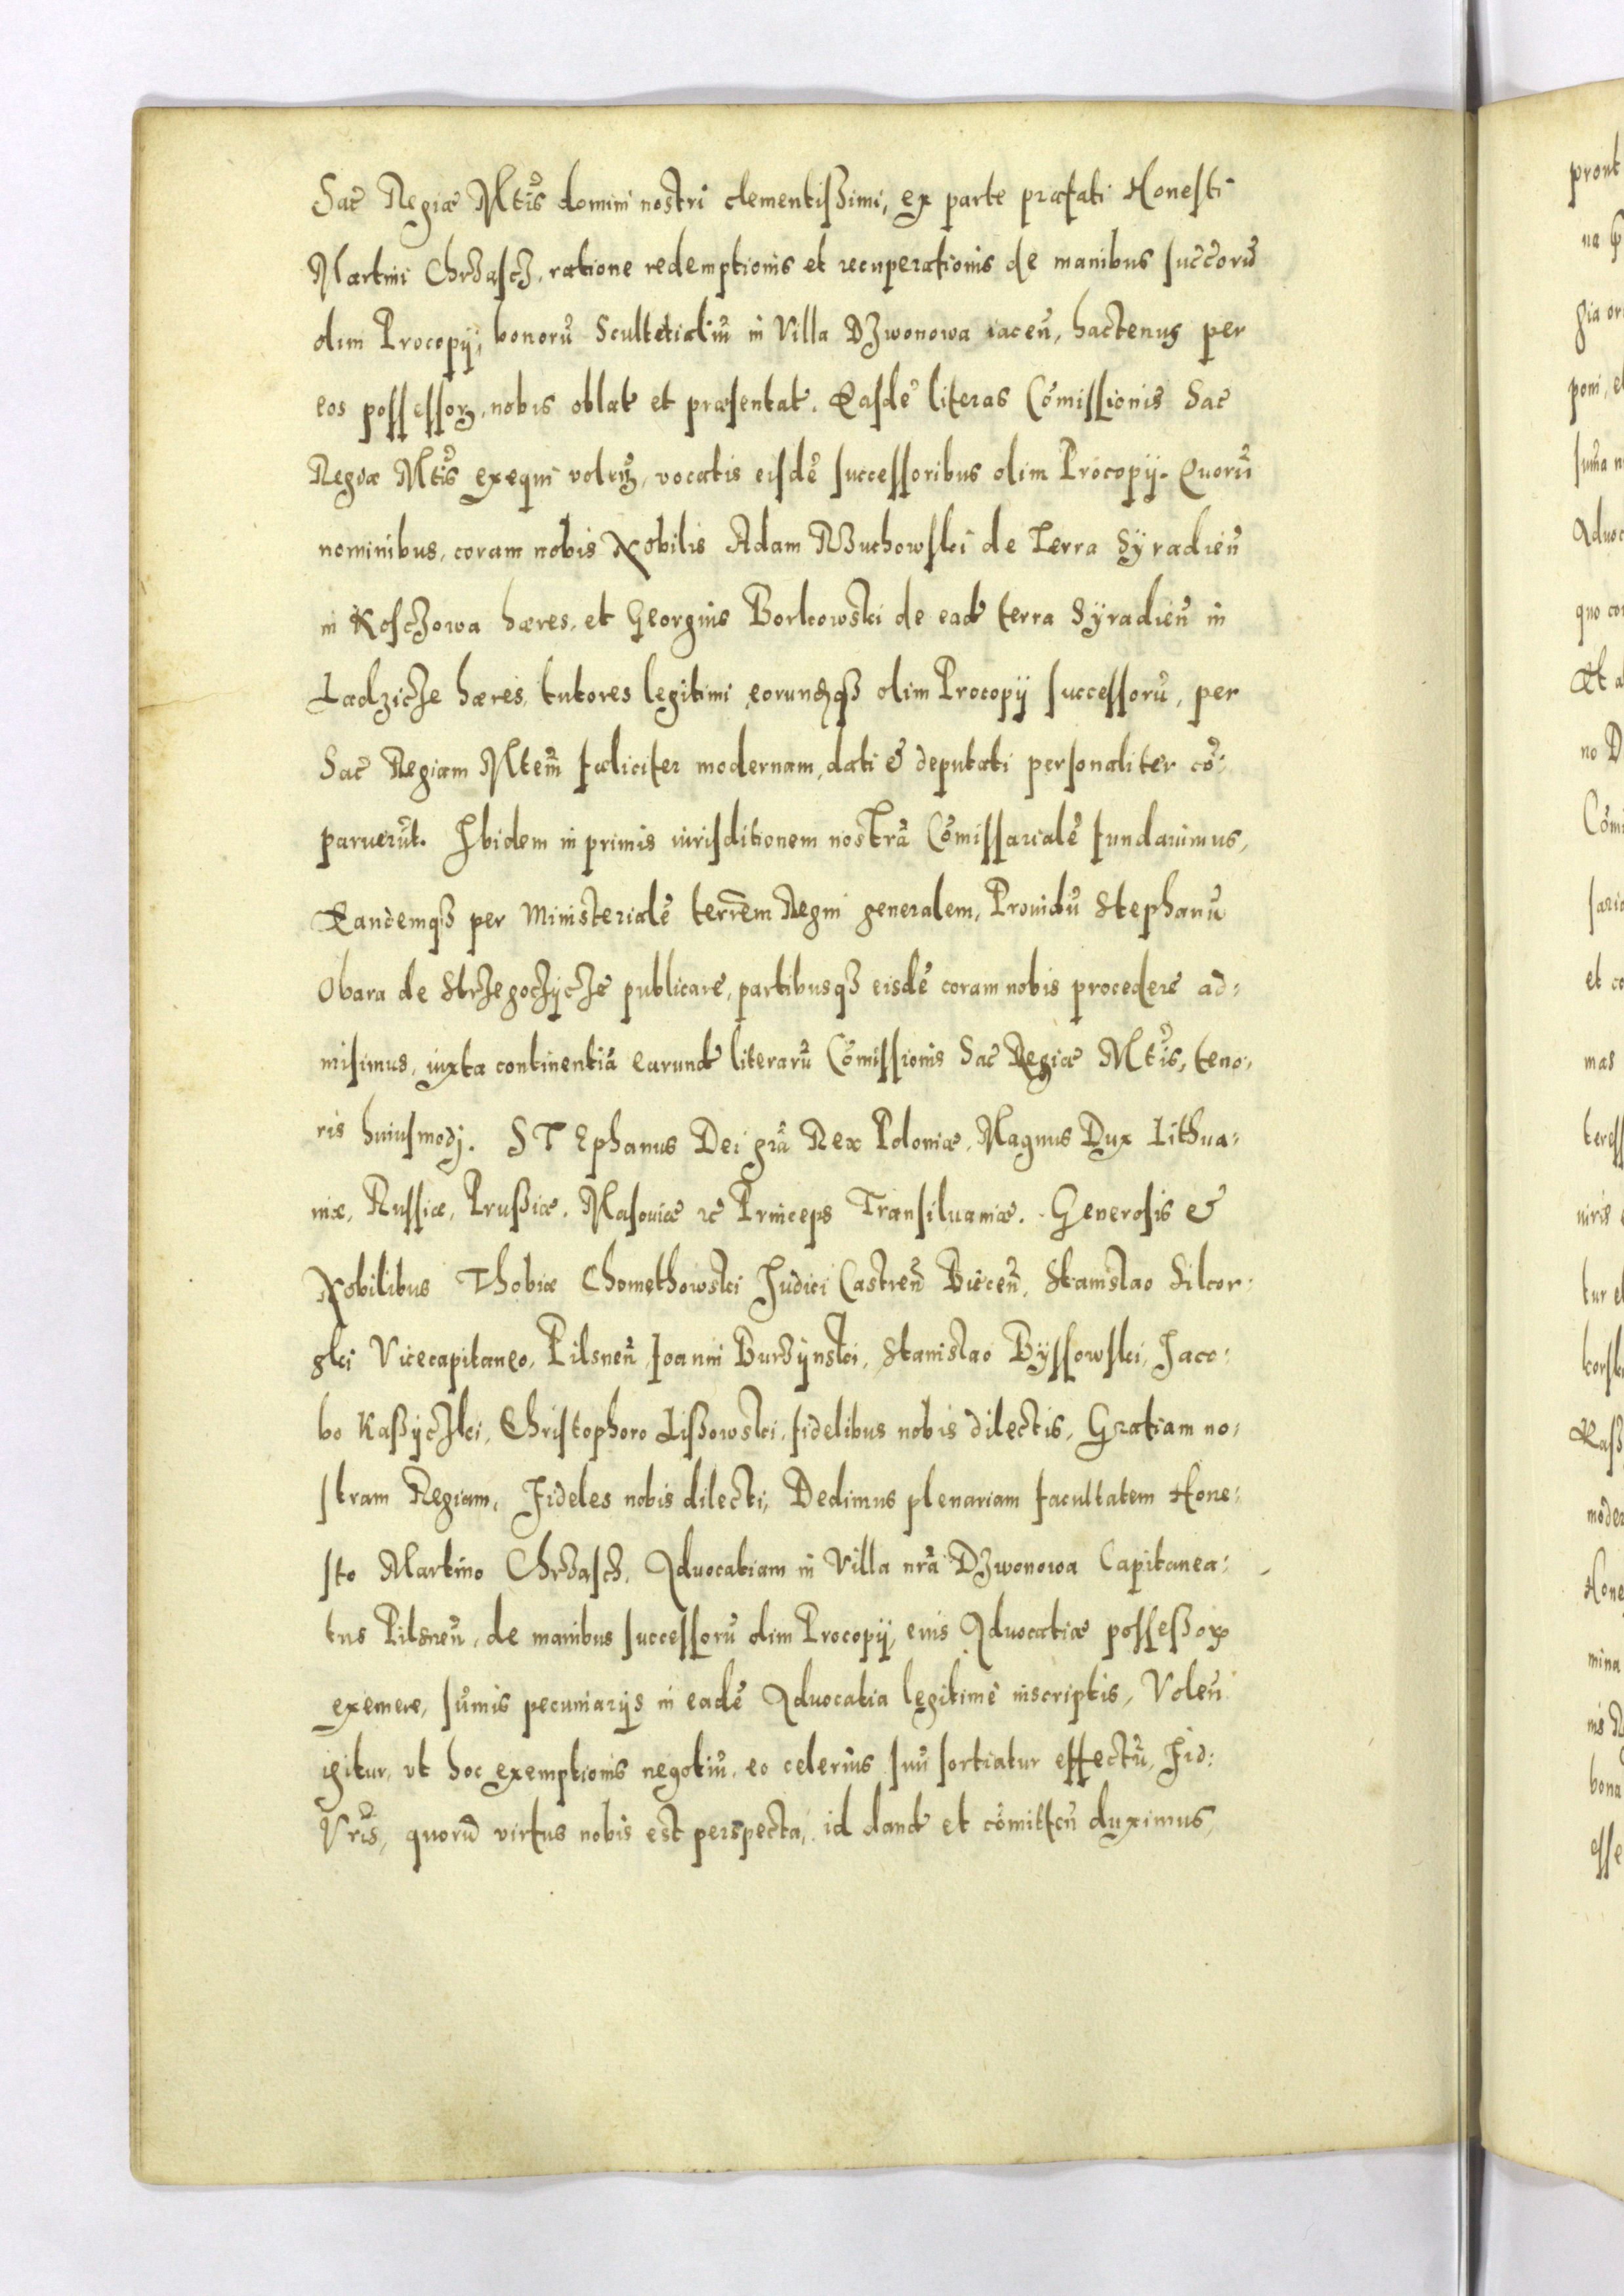 Sac̃ Regiæ Mt̃is domini nostri clementißimi, ex parte præfati Honesti
Martini Chrząscz, ratione redemptionis et recuperationis de manibus succ̃orũ
olim Procopij, bonorũ Scultetialiũ in Villa Dzwonowa iaceñ, hactenus per
eos possessorꝝ, nobis oblat et præsentat. Easdẽ literas Cõmissionis Sac̃
Regiæ Mt̃is exequi volẽn, vocatis eisdẽ successoribus olim Procopij. Quorũ
nominibus, coram nobis Nobilis Adam Wuchowski de Terra Syradieñ
in Kosczowa hæres, et Georgius Borkowski de ead terra Syradieñ in
Ladzicze hæres, tutores legitimi, eorundẽqꝫ olim Procopij successorũ, per
Sac̃ Regiam Mtem̃ fæliciter modernam, dati & deputati personaliter cõ:
paruerũt. Ibidem in primis iurisditionem nostrã Cõmissarialẽ fundauimus,
Eandemqꝫ per Ministerialẽ terrẽm Regni generalem, Prouidũ Stephanũ
Obara de Strzegoczycze publicare, partibusqꝫ eisdẽ coram nobis procedere ad:
misimus, iuxta continentiã earund literarũ Cõmissionis Sac̃ Regiæ Mt̃is, teno:
ris huiusmodj. STEphanus Dei grã Rex Poloniæ, Magnus Dux Lithua:
niæ, Russiæ, Prußiæ, Masouiæ ꝛc̃ Princeps Transiluaniæ. Generosis &
Nobilibus Thobiæ Chomethowski Judici Castreñ Bieceñ, Stanislao Sikor:
ski Vicecapitaneo, Pilsneñ, Joanni Burzynski, Stanislao Byssowski, Jaco:
bo Kaßyczki, Christophoro Lißowski, fidelibus nobis dilectis, Gratiam no:
stram Regiam, Fideles nobis dilecti, Dedimus plenariam facultatem Hone:
sto Martino Chrząscz, Aduocatiam in Villa nrã Dzwonowa Capitanea:
tus Pilsneñ, de manibus successorũ olim Procopij, eius Aduocatiæ posseßorꝝ
exemere, sũmis pecuniarijs in eadẽ Aduocatia legitimè inscriptis, Voleñ
igitur, vt hoc exemptionis negotiũ, eo celerius suũ sortiatur effectũ, Fid:
Vrĩs, quorũ virtus nobis est perspecta, id dand et cõmitteñ duximus,
pront
na
gia or
poni, et
sum̃a n
Aduoc
quo co
Et a
no D
Cõmi
saria
et co
mas
teress
niris
tur et
korsk
Kaß
moder
Hone
mina
nis R
bona
esse